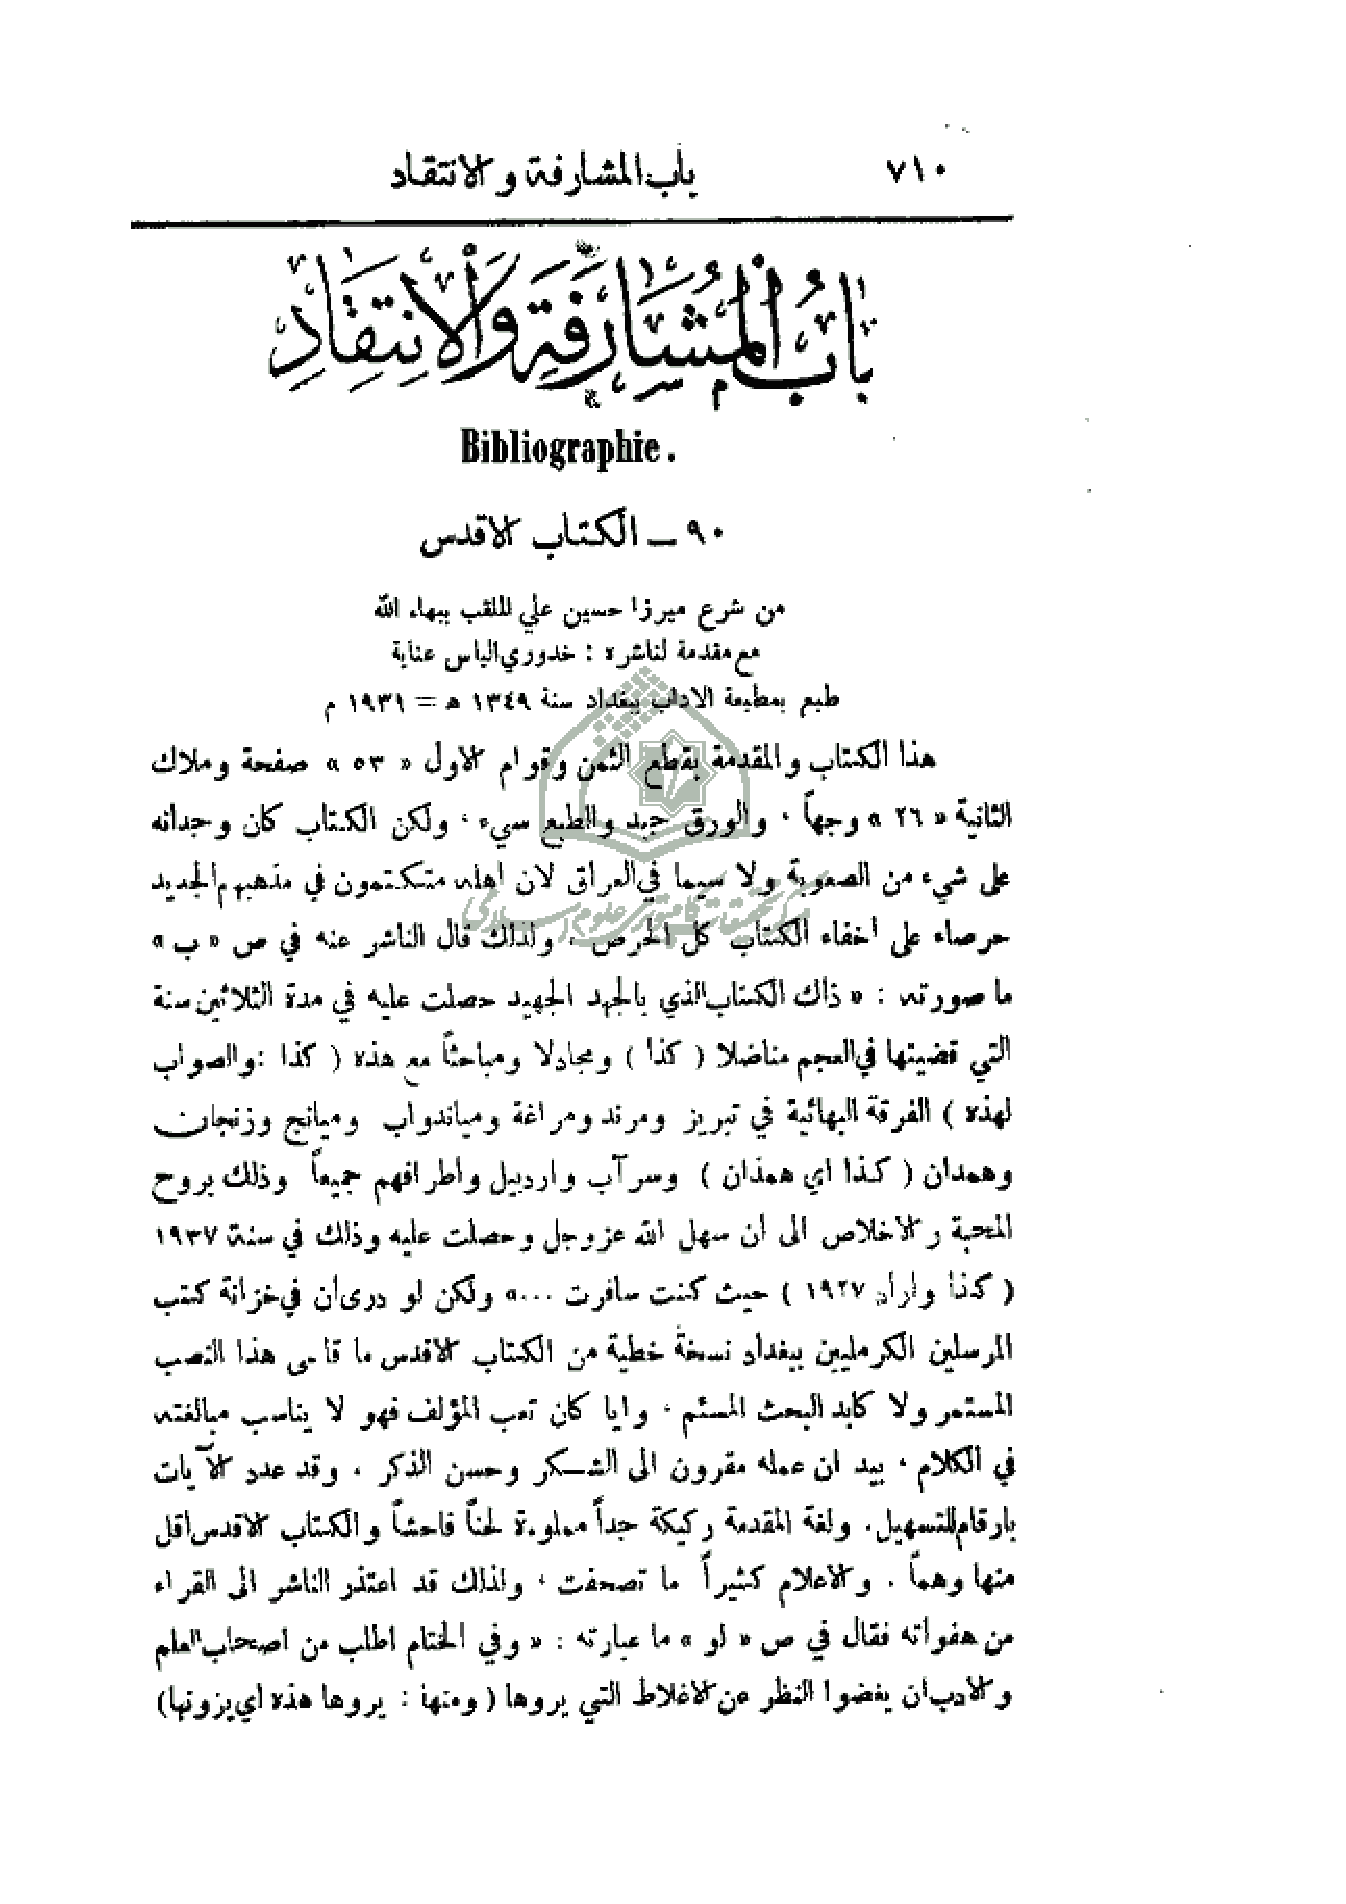 ٧١٠ باب المشارفة والانتقاد
بَابُ الْمُشَارَفَةِ وَالْاِنْتِقَادِ
Bibliographie.
٩٠ ــ الكتاب الاقدس
من شرع ميرزا حسين علي الملقب ببهاء الله
مع مقدمة لناشره : خدوري الياس عناية
طبع بمطبعة الآداب ببغداد سنة ١٣٤٩ هـ = ١٩٣١ م
هذا الكتاب والمقدمة بقطع الثمن وقوام الاول « ٥٣ » صفحة وملاك
الثانية « ٢٦ » وجهاً . والورق جيد والطبع سيء . ولكن الكتاب كان وجدانه
على شيء من الصعوبة ولا سيما في العراق لان اهله متكتمون في مذهبهم الجديد
حرصاء على أخفاء الكتاب كل الحرص . ولذلك قال الناشر عنه في ص « ب »
ما صورته : « ذاك الكتاب الذي بالجهد الجهيد حصلت عليه في مدة الثلاثين سنة
التي قضيتها في العجم مناضلا ( كذا ) ومجادلا ومباحثاً مع هذه ( كذا : والصواب
لهذه ) الفرقة البهائية في تبريز ومرند ومراغة ومياندواب وميانج وزنجان
وهمدان ( كذا اي همذان ) وسرآب واردبيل واطرافهم جميعاً وذلك بروح
المحبة والاخلاص الى ان سهل الله عزوجل وحصلت عليه وذلك في سنة ١٩٣٧
( كذا واراد ١٩٢٧ ) حيث كنت سافرت ...» ولكن لو درى ان في خزانة كتب
المرسلين الكرمليين ببغداد نسخة خطية من الكتاب الاقدس ما قاسى هذا النصب
المستمر ولا كابد البحث المسئم . وايا كان تعب المؤلف فهو لا يناسب مبالغته
في الكلام . بيد ان عمله مقرون الى الشكر وحسن الذكر . وقد عدد الآيات
بارقام للتسهيل . ولغة المقدمة ركيكة جداً مملوءة لحناً فاحشاً والكتاب الاقدس اقل
منها وهماً . والاعلام كثيراً ما تصحفت . ولذلك قد اعتذر الناشر الى القراء
من هفواته فقال في ص « لو » ما عبارته : « وفي الختام اطلب من اصحاب العلم
والادب ان يغضوا النظر عن الاغلاط التي يروها ( ومنها : يروها هذه اي يرونها )